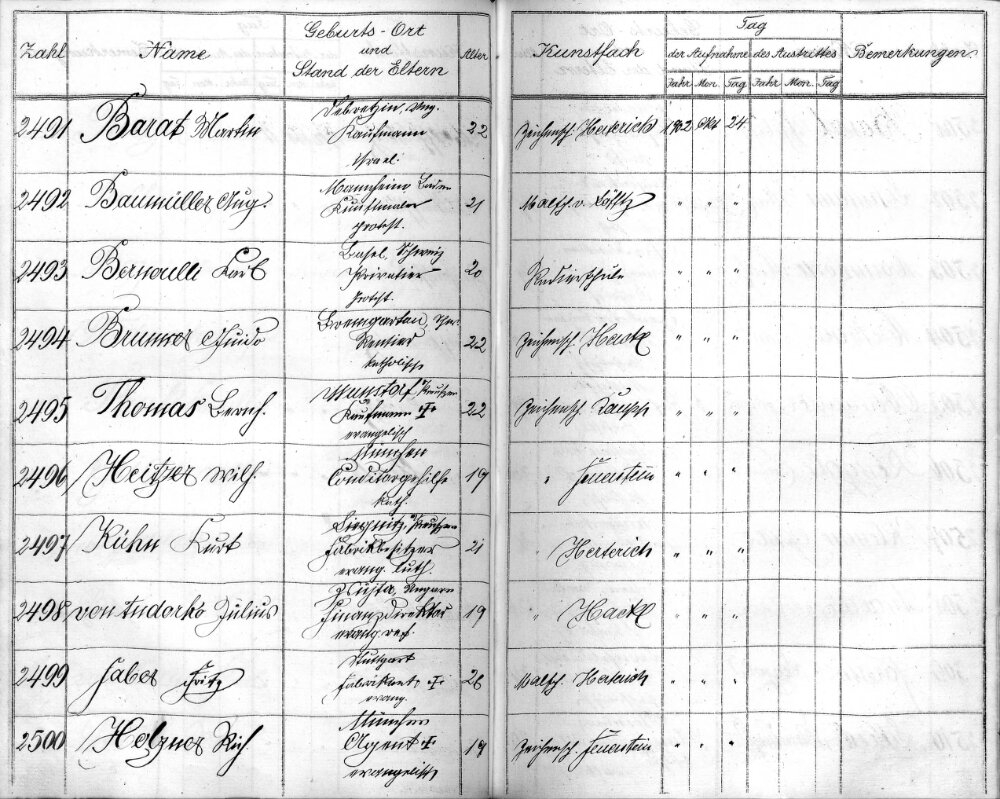 Zahl
Name
Geburts-Ort
und
Stand der Eltern
Alter
Kunstfach
Tag
der Aufnahme
des Austrittes
Jahr Mon. Tag Jahr Mon. Tag
Bemerkungen
2491 Barat Martin
Debretzin, Ung.
Kaufmann
israel.
22
Zeichensch. Herterich 1902 Okt 24
2492 Baumüller Aug.
Mannheim Baden
Kunstmaler
protest.
21
Malsch. v. Löfftz " " "
2493 Bernoulli Karl
Basel, Schweiz
Privatier
protest.
20
Radierschule " " "
2494 Brunner Guido
Bremgarten,
Rentier
katholisch
22
Zeichensch. Hackl " " "
2495 Thomas Bernh.
Wunstorf, Preußen
Kaufmann †
evangelisch
22
Zeichensch. Raupp " " "
2496 Heitzer Wilh.
München
Conditorgehilfe
kath.
19
" Feuerstein " " "
2497 Kühn Kurt
Liegnitz, Preußen
Fabrikbesitzer
evang. luth.
21
" Herterich " " "
2498 von Tudorko Julius
Ungarn
Finanzdirektor
evang. ref.
19
" Hackl " " "
2499 Faber Fritz
Stuttgart
Fabrikant †
evang.
26
Malsch. Herterich " " "
2500 Helzner Rich
München
Agent †
evangelisch
19
Zeichensch. Feuerstein " " "